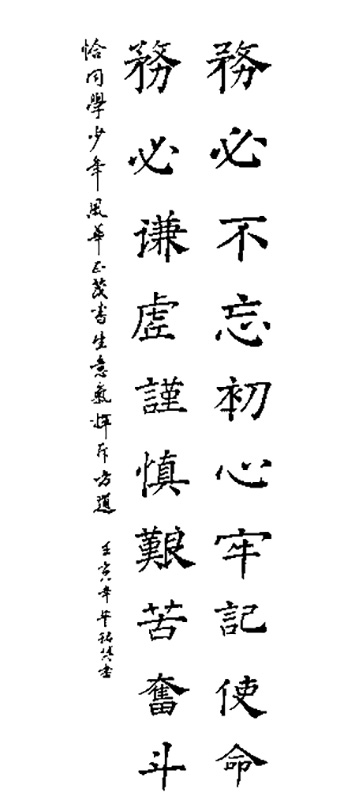 務必不忘初心牢記使命
務必谦虚謹慎艱苦奮斗
恰同學少年風華正茂書生意氣揮斥方遒
壬寅年